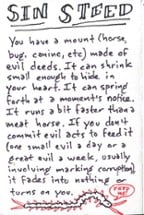 SIN STEED
You have a mount (horse,
bug, canine, etc) made of
evil deeds. It can shrink
small enough to hide in
your heart. It can spring
forth at a moment's notice.
It runs a bit faster than a
meat horse. If you don't
commit evil acts to feed it
(one small evil a day or a
great evil a week, usually
involving marking corruption)
it fades into nothing or
turns on you.
FEED ME!